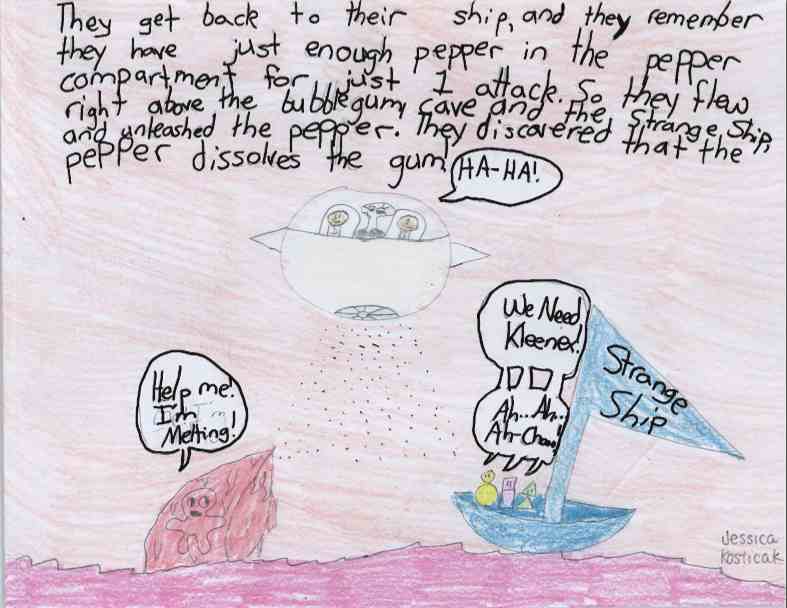 They get back to their ship, and they remember
they have just enough pepper in the pepper
compartment for just 1 attack. So they flew
right above the bubblegum cave and the Strange Ship,
and unleashed the pepper. They discovered that the
pepper dissolves the gum!
HA-HA!
We Need
Kleenex!
Strange
Ship
Help me!
I'm
Melting!
Ah...Ah..
Ah-Choo!
Jessica
Kosticak